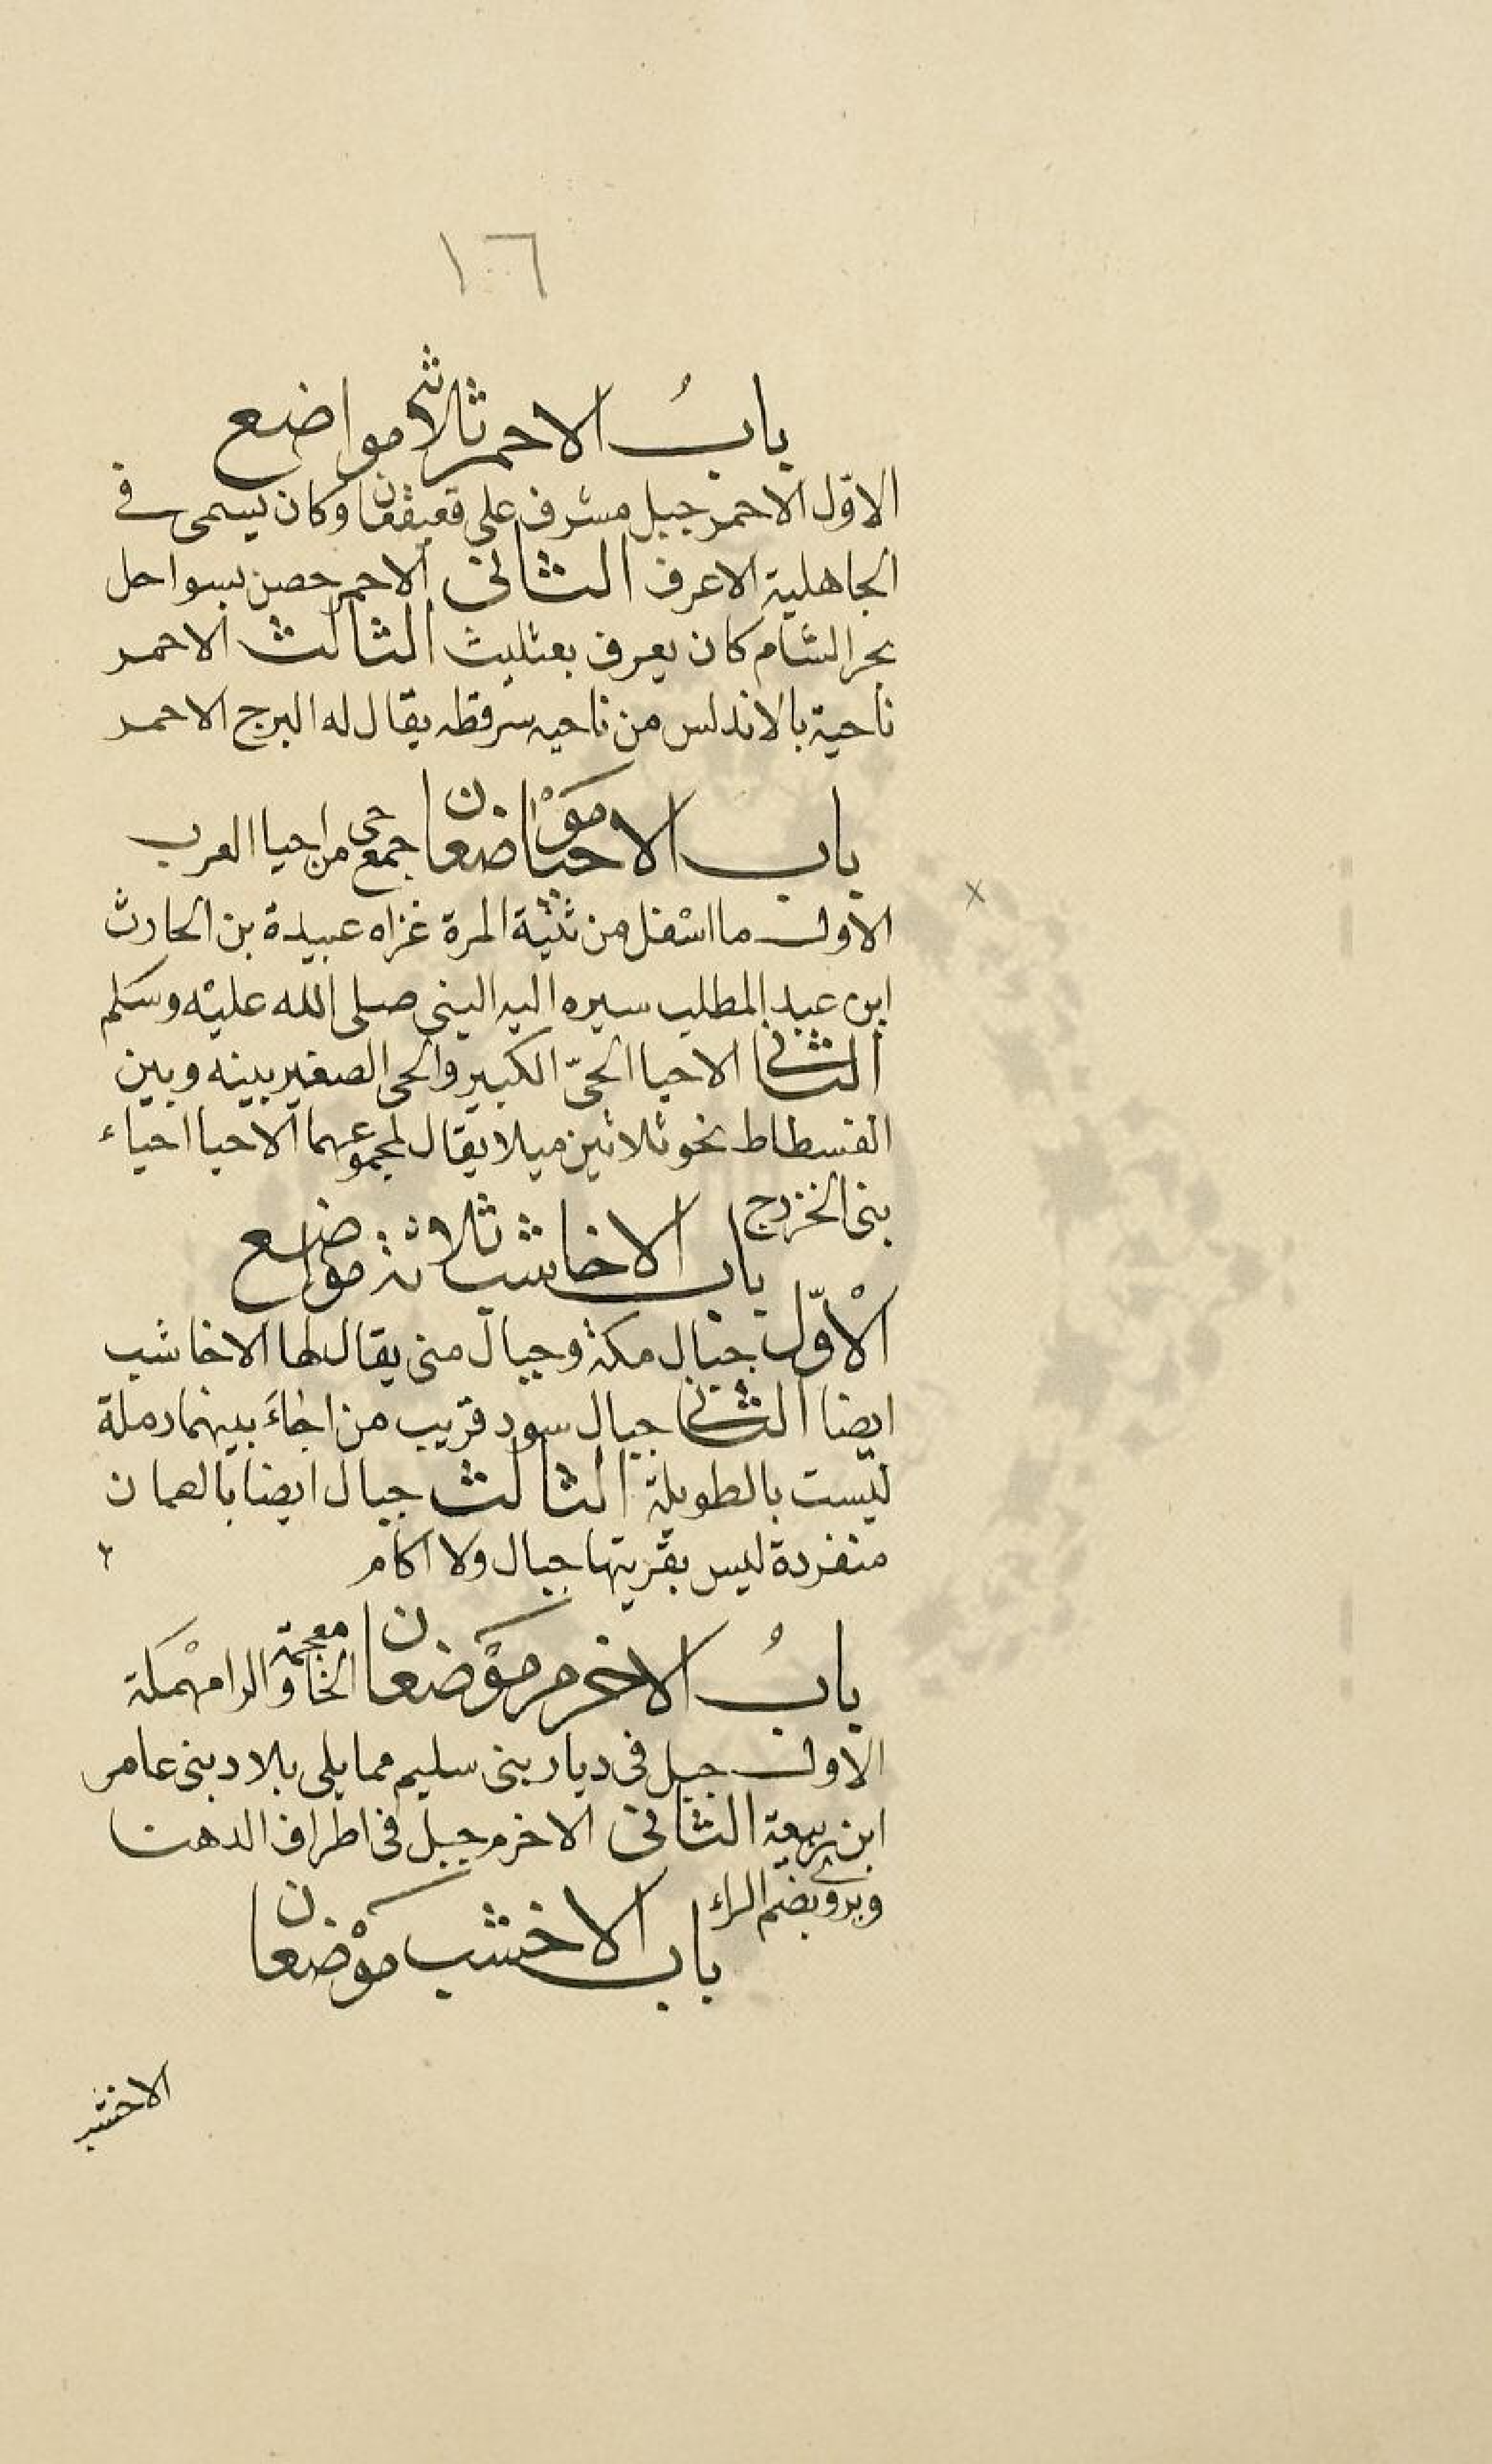 ١٦
بابُ الاحمر ثلاثة مواضع
الاوّل الاحمر جبل مشرف على قعيقعان وكان يسمى في
الجاهلية الاعرف الثاني الاحمر حصن بسواحل
بحر الشام كان يعرف بعثليث الثالث الاحمر
ناحية بالاندلس من ناحيه سرقطه يقال له البرج الاحمر
باب الاحيا موْضعان جمع حى من احيا العرب
الاول ما اسْفل من ثنية المرة غزاه عبيدة بن الحارث
ابن عبد المطلب سيره اليه النبي صلى الله عليْه وسَلم
الثاني الاحيا الحىّ الكبير والحى الصغير بينه وبين
الفسطاط نحو ثلاثين ميلا يقال لمجموعهما الاحيا احياء
بنى الخزرج
باب الاخاشب ثلاثة مواضع
الْاوّل جبال مكة وجبال منى يقال لها الاخاشب
ايضا الثاني جبال سود قريب من اجاءَ بينهما رملة
ليست بالطويلة الثالث جبال ايضا بالصمان
منفردة ليس بقربتها جبال ولا اكام
بابُ الاخرم موْضعان الخا معجمة والرا مهْمَلة
الاول جبل فى ديار بنى سليم مما يلى بلاد بنى عامر
ابن ربيعة الثانى الاخرم جبل فى اطراف الدهنا
ويروى بضم الراء
باب الاخشب موْضعان
الاخشب